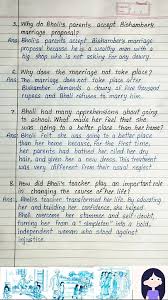 5. Why do Bholi's parents accept Bishamber's
marriage proposal?
Ans. Bholi's parents accept Bishamber's marriage
proposal because he is a wealthy man with a
big shop who is not asking for any dowry.
6. Why does the marriage not take place?
Ans The marriage does not take place after
Bishamber demands a dowry of five thousand
rupees and Bholi refuses to marry him.
7. Bholi had many apprehensions about going
to school. What made her feel that she
was going to a better place than her home?
Ans Bholi felt she was going to a better place
than her home because, for the first time,
her parents had bathed her, oiled her dry
hair, and given her a new dress. This treatment
was very different from their usual neglect
8. How did Bholi's teacher play an important role
in changing the course of her life?
Ans. Bholi's teacher transformed her life. By educating
her and building her confidence, she helped
Bholi overcome her stammer and self-doubt,
turning her from a "simpleton" into a bold,
independent woman who stood against
injustice.